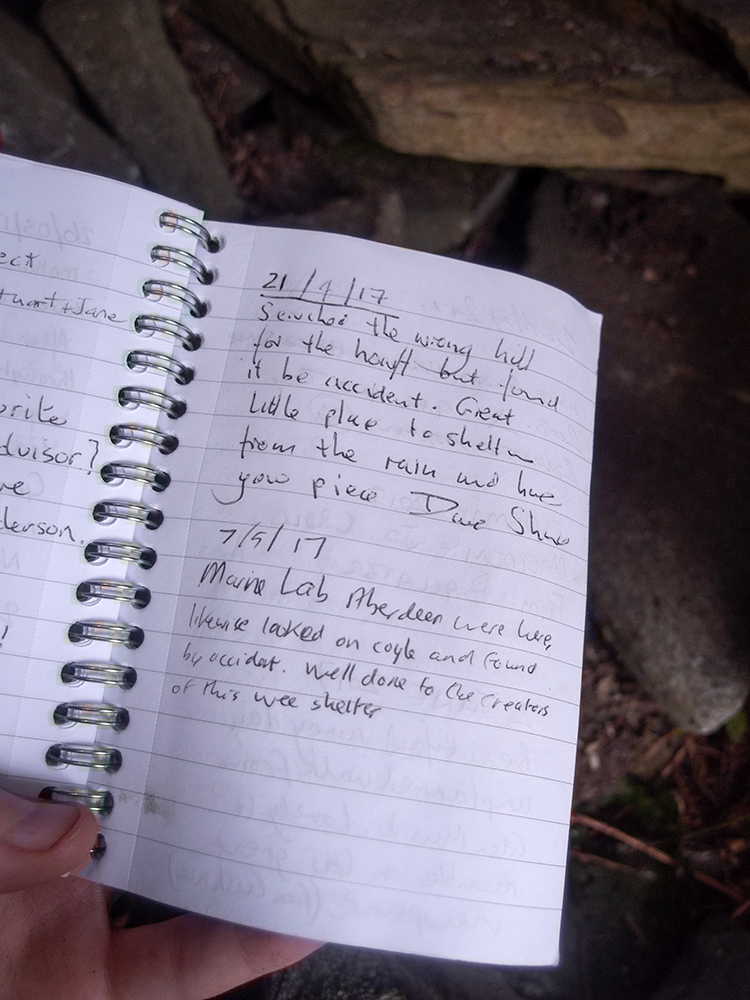 ect
+Jane
write
dvisor?
ve
derson.
!
21/4/17
Searched the wrong hill
for the howff but found
it be accident. Great
little place to shelter
from the rain and have
your piece Dave Shaw
7/5/17
Marine Lab Aberdeen were here,
likewise looked on coyle and found
by accident. Well done to the creators
of this wee shelter